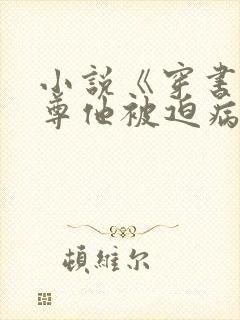 小説《穿書
尊他被迫病
頓維尔